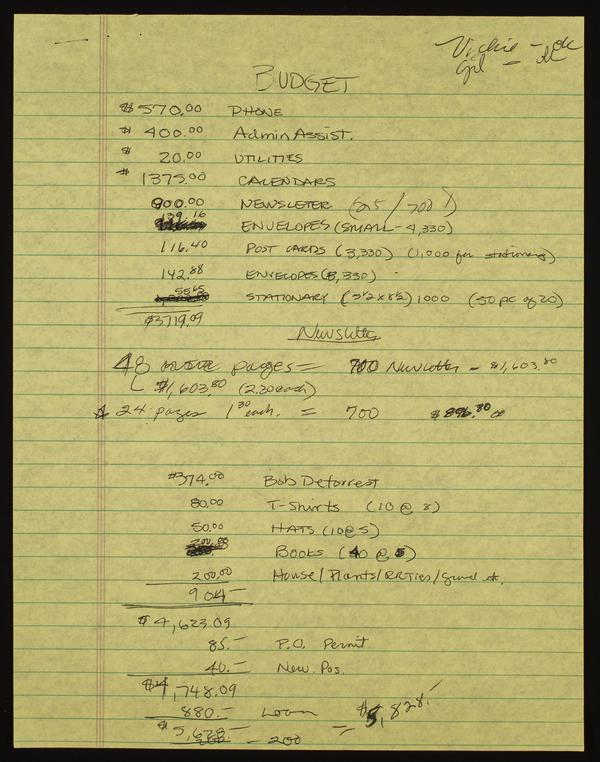 Vickie - ok
Gil - ok
BUDGET
$570.00 PHONE
$ 400.00 Admin Assist.
$ 20.00 UTILITIES
$ 1375.00 CALENDARS
900.00 NEWSLETER (25/700)
139.16 ENVELOPES (SMALL - 4,330)
116.40 POST CARDS (3,330) (1,000 for stationary)
142.88 ENVELOPES (3,330)
55.65 STATIONARY (5½ x 8½) 1000 (50 pc of 20)
$3719.09
Newsletter
48 pages = 700 Newsletter - $1,603.80
$1,603.80 (2.30 each)
24 pages 1.30 each. = 700 $896.80
$374.00 Bob Deforrest
80.00 T-Shirts (10 @ 8)
50.00 HATS (10 @ 5)
200.00 BOOKS (40 @ 5)
200.00 House/Plants/RRTies/
904-
$ 4,623.09
85.- P.O. Permit
40.- New Pos.
$4,748.09
880.- Loan
= $5,828.-
$5,628.-
- 200